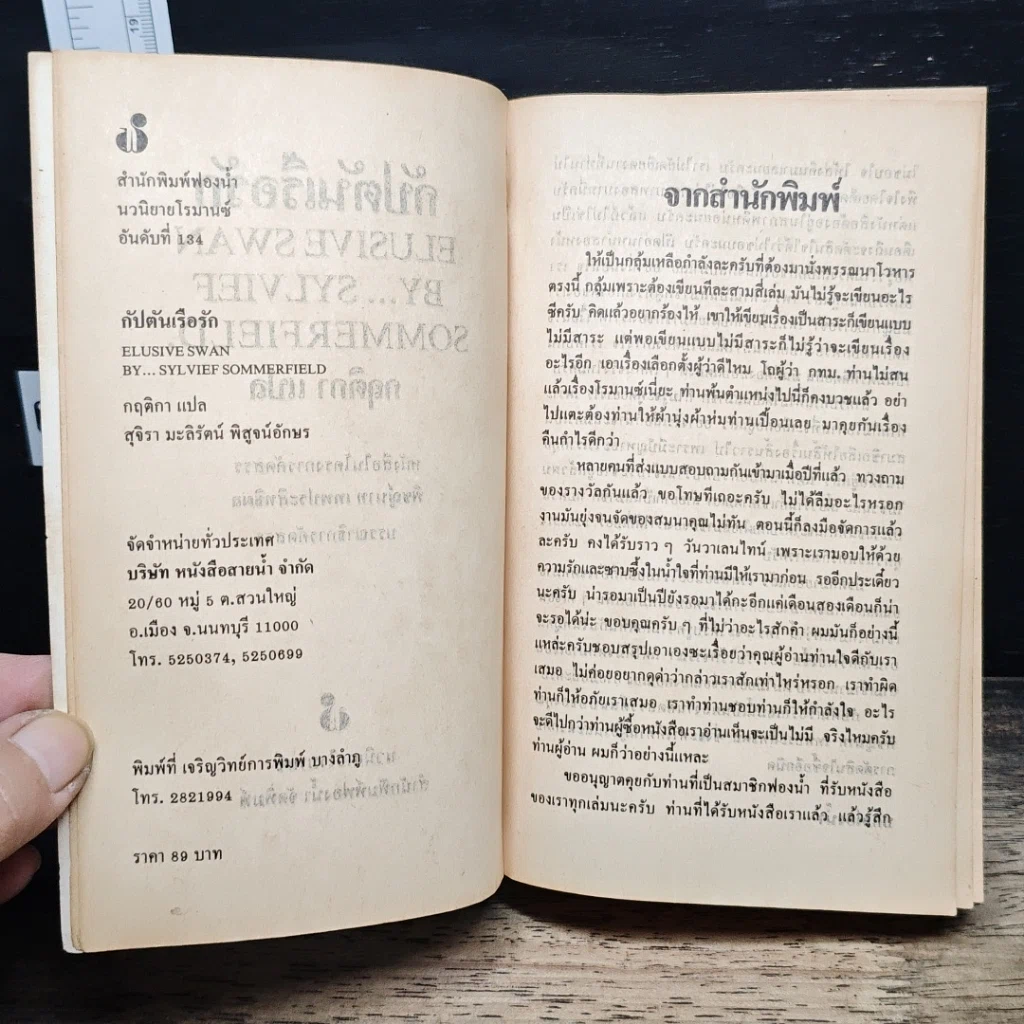 สำนักพิมพ์ฟองน้ำ
นวนิยายโรมานซ์
อันดับที่ 134
กัปตันเรือรัก
ELUSIVE SWAN
BY... SYLVIEF SOMMERFIELD
กฤติกา แปล
สุจิรา มะลิรัตน์ พิสูจน์อักษร
จัดจำหน่ายทั่วประเทศ
บริษัท หนังสือสายน้ำ จำกัด
20/60 หมู่ 5 ต.สวนใหญ่
อ.เมือง จ.นนทบุรี 11000
โทร. 5250374, 5250699
พิมพ์ที่ เจริญวิทย์การพิมพ์ บางลำภู
โทร. 2821994
ราคา 89 บาท
จากสำนักพิมพ์
ให้เป็นกลุ้มเหลือกำลังละครับที่ต้องมานั่งพรรณนาโวหาร
ตรงนี้ กลุ้มเพราะต้องเขียนทีละสามสี่เล่ม มันไม่รู้จะเขียนอะไร
ซีครับ คิดแล้วอยากร้องไห้ เขาให้เขียนเรื่องเป็นสาระก็เขียนแบบ
ไม่มีสาระ แต่พอเขียนแบบไม่มีสาระก็ไม่รู้ว่าจะเขียนเรื่อง
อะไรอีก เอาเรื่องเลือกตั้งผู้ว่าดีไหม โถผู้ว่า กทม. ท่านไม่สน
แล้วเรื่องโรมานซ์เนี่ยะ ท่านพ้นตำแหน่งไปนี่ก็คงบวชแล้ว อย่า
ไปแตะต้องท่านให้ผ้านุ่งผ้าห่มท่านเปื้อนเลย มาคุยกันเรื่อง
คืนกำไรดีกว่า
หลายคนที่ส่งแบบสอบถามกันเข้ามาเมื่อปีที่แล้ว ทวงถาม
ของรางวัลกันแล้ว ขอโทษทีเถอะครับ ไม่ได้ลืมอะไรหรอก
งานมันยุ่งจนจัดของสมนาคุณไม่ทัน ตอนนี้ก็ลงมือจัดการแล้ว
ละครับ คงได้รับราว ๆ วันวาเลนไทน์ เพราะเรามอบให้ด้วย
ความรักและซาบซึ้งในน้ำใจที่ท่านมีให้เรามาก่อน รออีกประเดี๋ยว
นะครับ น่ารอมาเป็นปียังรอมาได้กะอีกแค่เดือนสองเดือนก็น่า
จะรอได้น่ะ ขอบคุณครับ ๆ ที่ไม่ว่าอะไรสักคำ ผมมันก็อย่างนี้
แหล่ะครับชอบสรุปเอาเองซะเรื่อยว่าคุณผู้อ่านท่านใจดีกับเรา
เสมอ ไม่ค่อยอยากดุด่าว่ากล่าวเราสักเท่าไหร่หรอก เราทำผิด
ท่านก็ให้อภัยเราเสมอ เราทำท่านชอบท่านก็ให้กำลังใจ อะไร
จะดีไปกว่าท่านผู้ซื้อหนังสือเราอ่านเห็นจะเป็นไม่มี จริงไหมครับ
ท่านผู้อ่าน ผมก็ว่าอย่างนี้แหละ
ขออนุญาตคุยกับท่านที่เป็นสมาชิกฟองน้ำ ที่รับหนังสือ
ของเราทุกเล่มนะครับ ท่านที่ได้รับหนังสือเราแล้ว แล้วรู้สึก